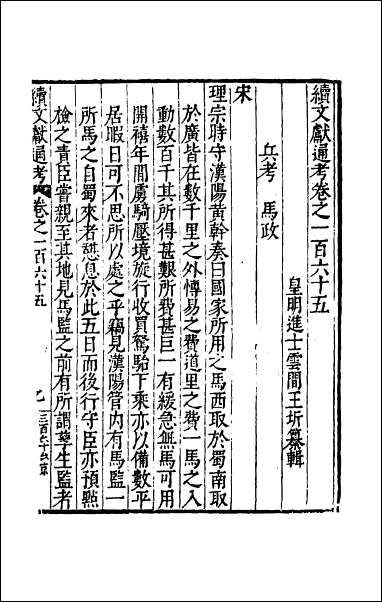 續文獻通考卷之一百六十五
皇明進士雲間王圻纂輯
兵考 馬政
宋
理宗時守漢陽黃幹奏曰國家所用之馬西取於蜀南取
於廣皆在數千里之外博易之費道里之費一馬之入
動數百千其所得甚艱所費甚巨一有緩急無馬可用
開禧年間虜騎壓境旋行收買駑駘下乘亦以備數平
居暇日可不思所以處之乎竊見漢陽管内有馬監一
所馬之自蜀來者憩息於此五日而後行守臣亦預點
檢之責臣嘗親至其地見馬監之前有所謂孳生監者
續文獻通考 卷之一百六十五